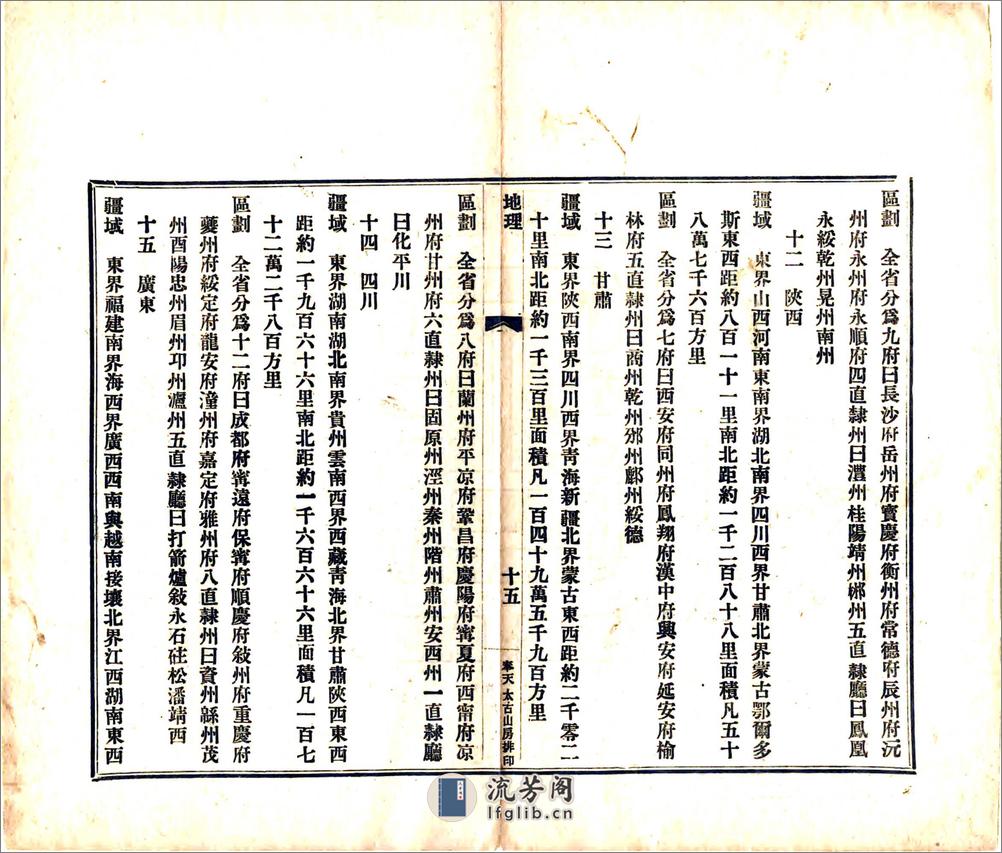 區劃　全省分爲九府曰長沙府岳州府寶慶府衡州府常德府辰州府沅
州府永州府永順府四直隸州曰澧州桂陽靖州郴州五直隸廳曰鳳凰
永綏乾州晃州南州
十二　陝西
疆域　東界山西河南東南界湖北南界四川西界甘肅北界蒙古鄂爾多
斯東西距約八百一十一里南北距約一千二百八十八里面積凡五十
八萬七千六百方里
區劃　全省分爲七府曰西安府同州府鳳翔府漢中府興安府延安府榆
林府五直隸州曰商州乾州邠州鄜州綏德
十三　甘肅
疆域　東界陝西南界四川西界青海新疆北界蒙古東西距約二千零二
十里南北距約一千三百里面積凡一百四十九萬五千九百方里
地理
十五
奉天太古山房排印
區劃　全省分爲八府曰蘭州府平凉府鞏昌府慶陽府寗夏府西甯府凉
州府甘州府六直隸州曰固原州涇州秦州階州肅州安西州一直隸廳
曰化平川
十四　四川
疆域　東界湖南湖北南界貴州雲南西界西藏青海北界甘肅陝西東西
距約一千九百六十六里南北距約一千六百六十六里面積凡一百七
十二萬二千八百方里
區劃　全省分爲十二府曰成都府寗遠府保寗府順慶府敍州府重慶府
夔州府綏定府龍安府潼州府嘉定府雅州府八直隸州曰資州緜州茂
州酉陽忠州眉州邛州瀘州五直隸廳曰打箭爐敍永石砫松潘靖西
十五　廣東
疆域　東界福建南界海西界廣西西南與越南接壤北界江西湖南東西
流芳阁
lfglib.cn